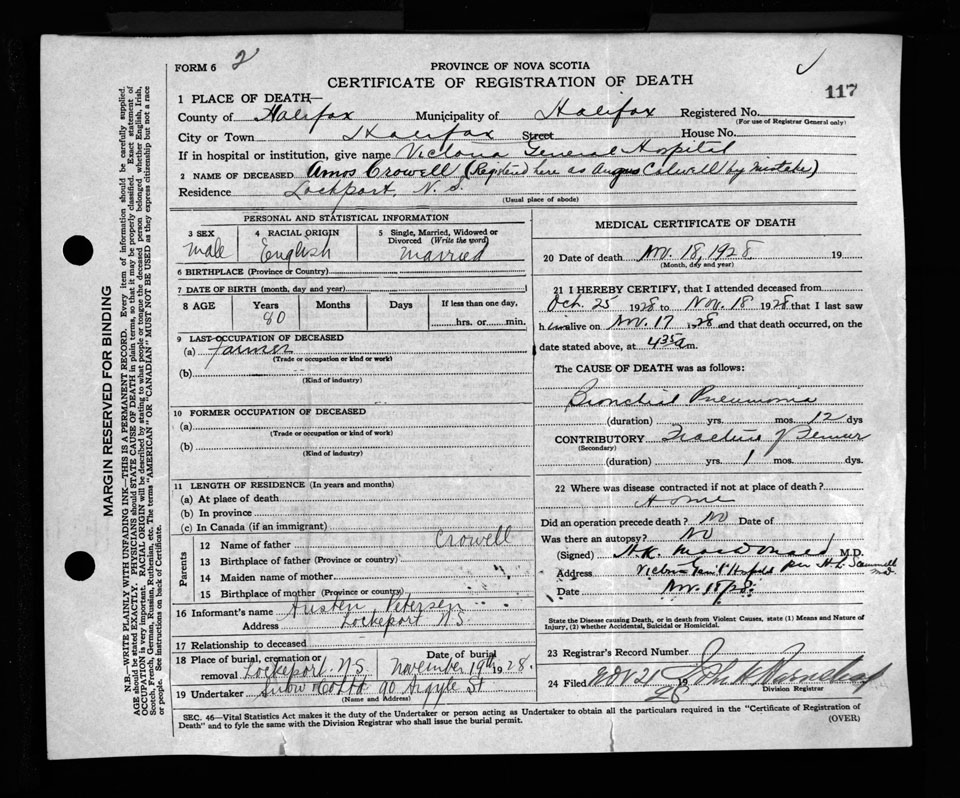 FORM 6 2
PROVINCE OF NOVA SCOTIA
CERTIFICATE OF REGISTRATION OF DEATH
117
1 PLACE OF DEATH—
County of Halifax Municipality of Halifax Registered No.
(For use of Registrar General only)
City or Town Halifax Street House No.
If in hospital or institution, give name Victoria General Hospital
2 NAME OF DECEASED Amos Crowell (Registered here as Angus Colwell by mistake)
Residence Lockport, N. S.
(Usual place of abode)
PERSONAL AND STATISTICAL INFORMATION
3 SEX
male
4 RACIAL ORIGIN
English
5 Single, Married, Widowed or
Divorced (Write the word)
Married
6 BIRTHPLACE (Province or Country)
7 DATE OF BIRTH (month, day and year)
8 AGE Years Months Days If less than one day,
80 hrs. or min.
9 LAST OCCUPATION OF DECEASED
(a) Farmer
(Trade or occupation or kind or work)
(b)
(Kind of industry)
10 FORMER OCCUPATION OF DECEASED
(a)
(Trade or occupation or kind of work)
(b)
(Kind of industry)
11 LENGTH OF RESIDENCE (In years and months)
(a) At place of death
(b) In province
(c) In Canada (if an immigrant)
Parents
12 Name of father Crowell
13 Birthplace of father (Province or country)
14 Maiden name of mother
15 Birthplace of mother (Province or country)
16 Informant's name Austen Petersen
Address Lockeport N.S.
17 Relationship to deceased
18 Place of burial, cremation or Date of burial
removal Lockeport N.S. November 19th 1928.
19 Undertaker Snow & Co Ltd 90 Argyle St
(Name and Address)
MEDICAL CERTIFICATE OF DEATH
20 Date of death Nov. 18, 1928 19
(Month, day and year)
21 I HEREBY CERTIFY, that I attended deceased from
Oct. 25 1928 to Nov. 18 1928 that I last saw
him alive on Nov. 17 1928 and that death occurred, on
date stated above, at 4 35 a m.
The CAUSE OF DEATH was as follows:
Bronchial Pneumonia
(duration) yrs. mos. 12 dys
CONTRIBUTORY Fracture of Femur
(Secondary)
(duration) yrs. 1 mos. dys.
22 Where was disease contracted if not at place of death?
Home
Did an operation precede death? No Date of
Was there an autopsy? No
(Signed) H.K. MacDonald M.D.
Address Victoria Gen'l Hospital per H.L.
Date Nov. 18/28.
State the Disease causing Death, or in death from Violent Causes, state (1) Means and Nature of
Injury, (2) whether Accidental, Suicidal or Homicidal.
23 Registrar's Record Number
24 Filed NOV 21 1928 John
Division Registrar
SEC. 46—Vital Statistics Act makes it the duty of the Undertaker or person acting as Undertaker to obtain all the particulars required in the "Certificate of Registration of
Death" and to fyle the same with the Division Registrar who shall issue the burial permit.
(OVER)
MARGIN RESERVED FOR BINDING
N.B.—WRITE PLAINLY WITH UNFADING INK—THIS IS A PERMANENT RECORD. Every item of information should be carefully supplied.
AGE should be stated EXACTLY. PHYSICIANS should STATE CAUSE OF DEATH in plain terms, so that it may be properly classified. Exact statement of
OCCUPATION is very important. RACIAL ORIGIN will be described by stating to what people or tongue the deceased person belonged whether English, Irish,
Scotch, French, German, Russian, Ruthenian, etc. The terms "AMERICAN" or "CANADIAN" MUST NOT BE USED as they express citizenship but not a race
or people. See instructions on back of Certificate.